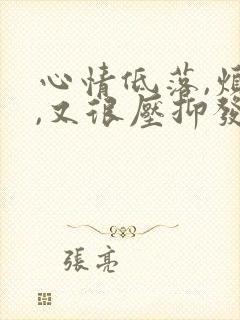 心情低落,煩
,又很壓抑發
張亮